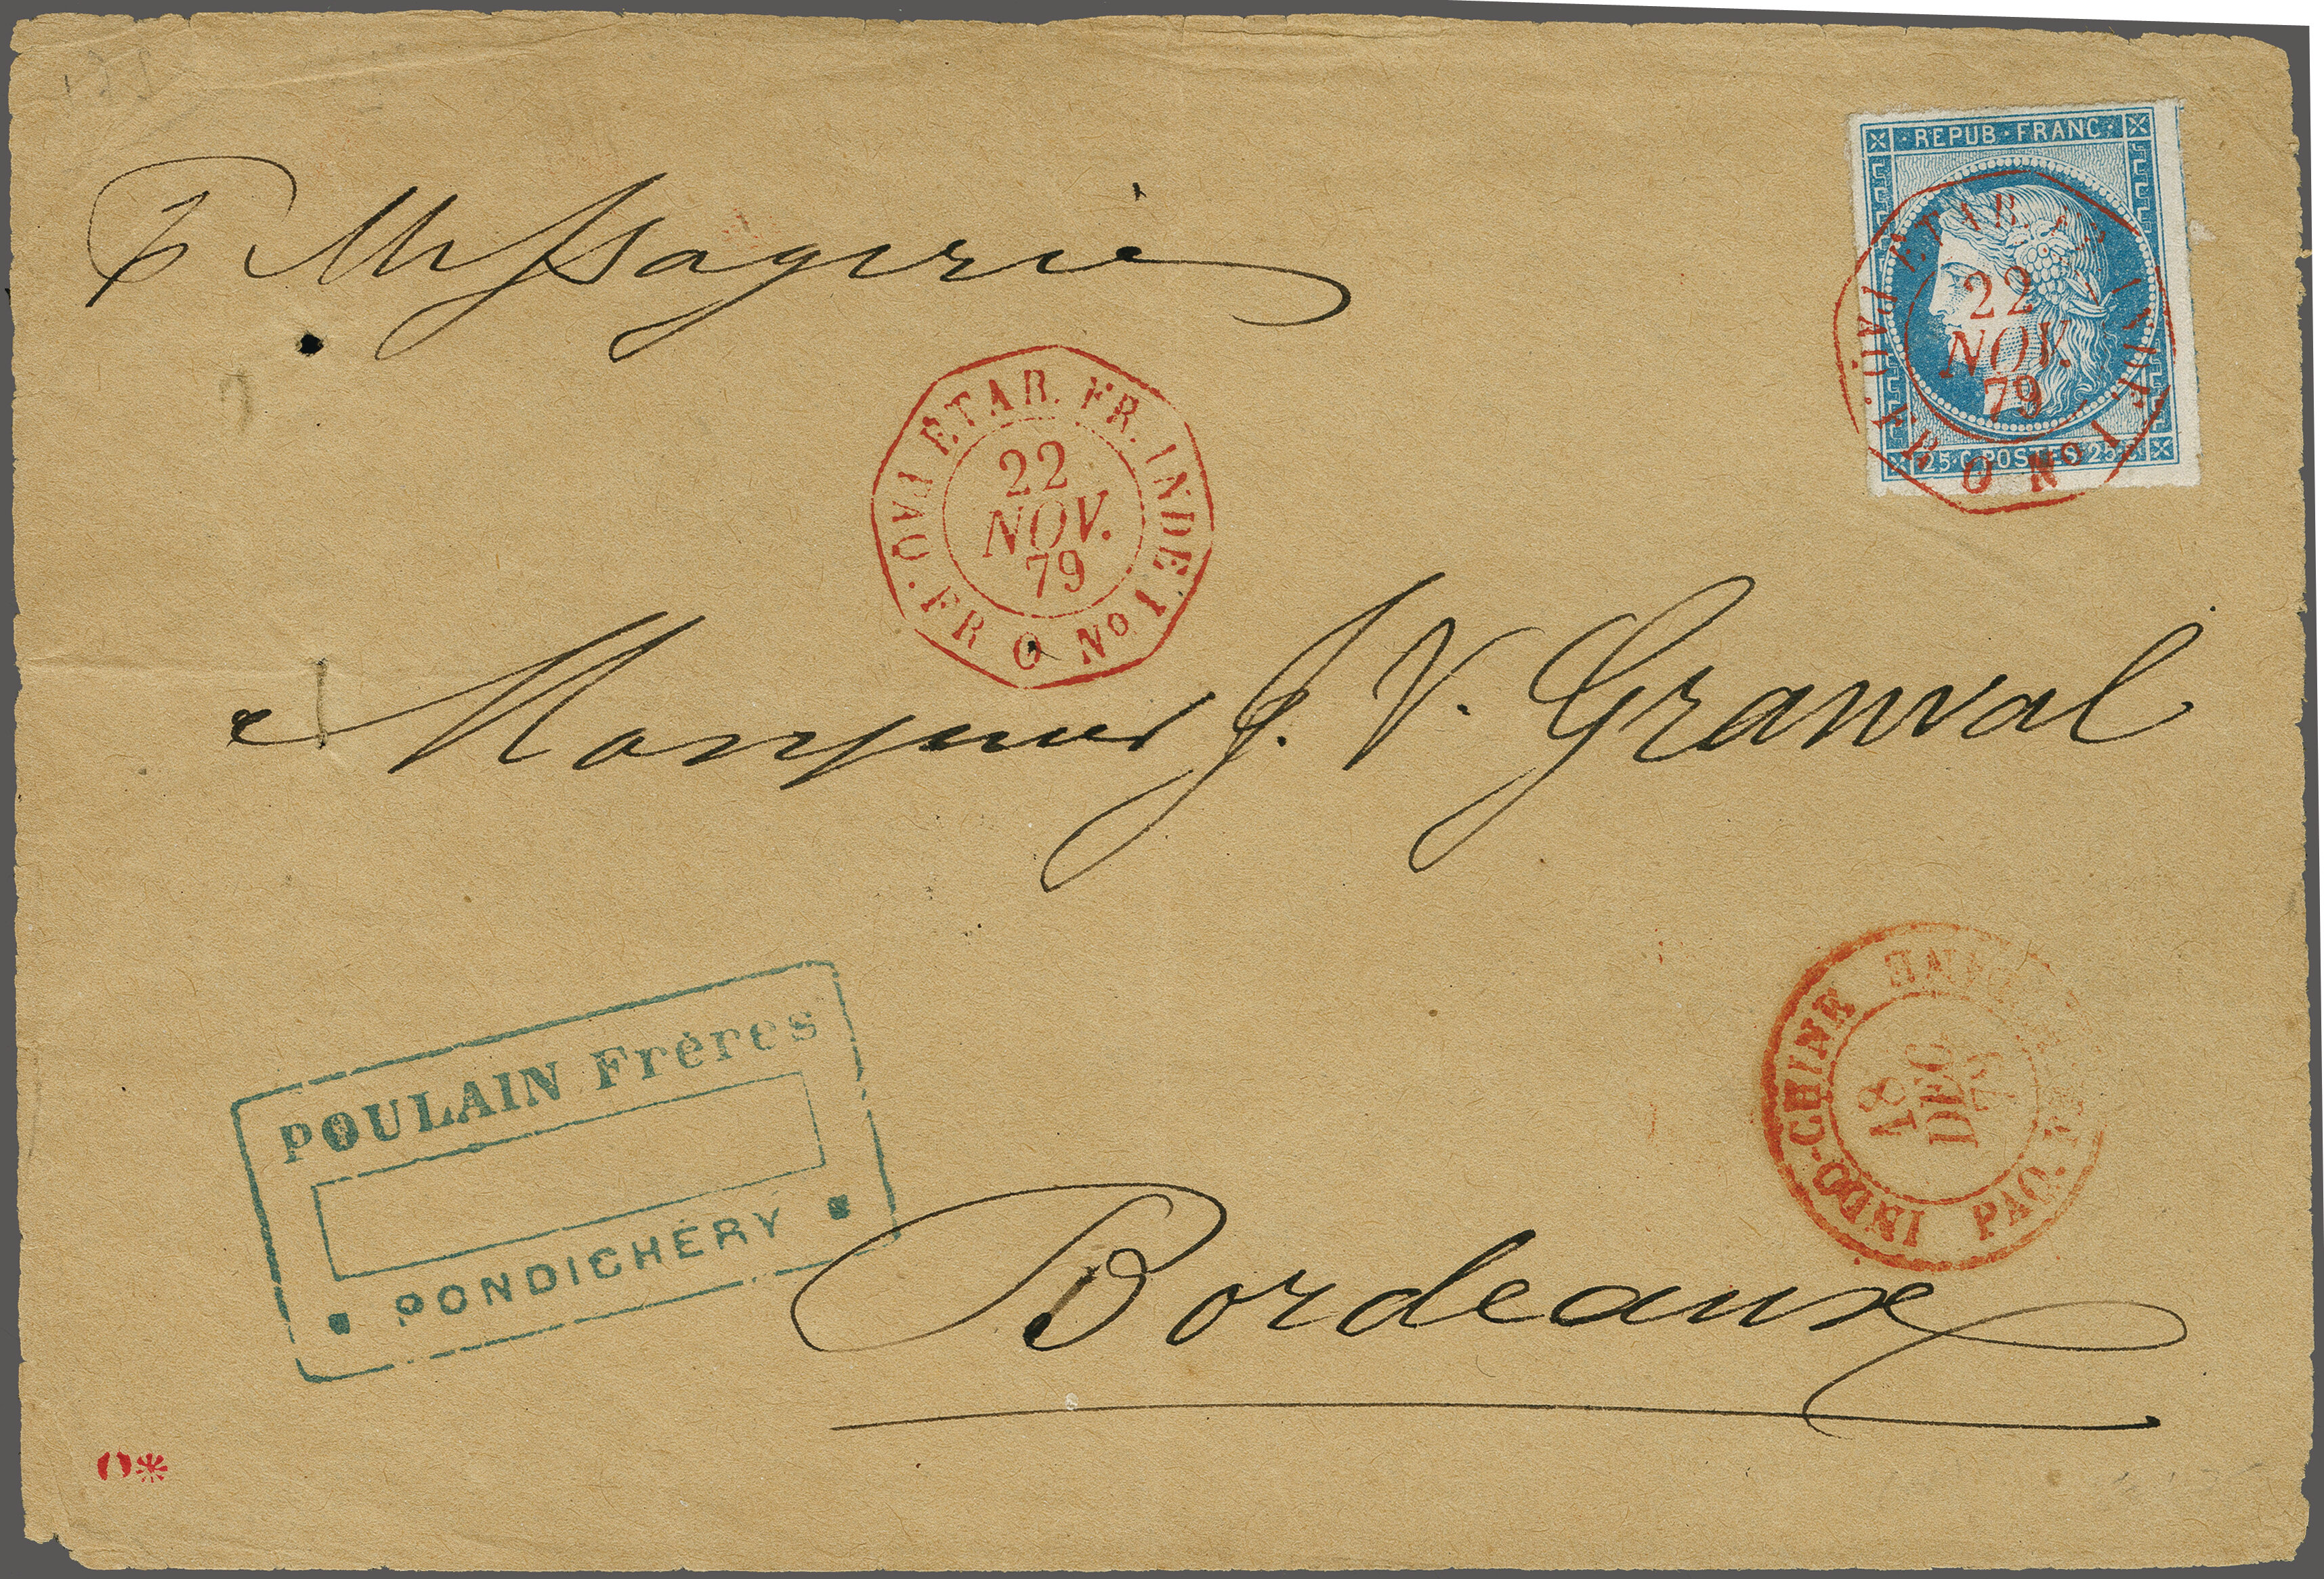 P. Messagerie
REPUB · FRANC ·
25 · C · POSTES · 25 · C
ETAB. FR. INDE PAQ. FR. O No 1
22
NOV.
79
ETAB. FR. INDE PAQ. FR. O No 1
22
NOV.
79
Monsieur J. V. Granval
INDO-CHINE PAQ.
18
DEC
79
POULAIN Frères
PONDICHÉRY
Bordeaux